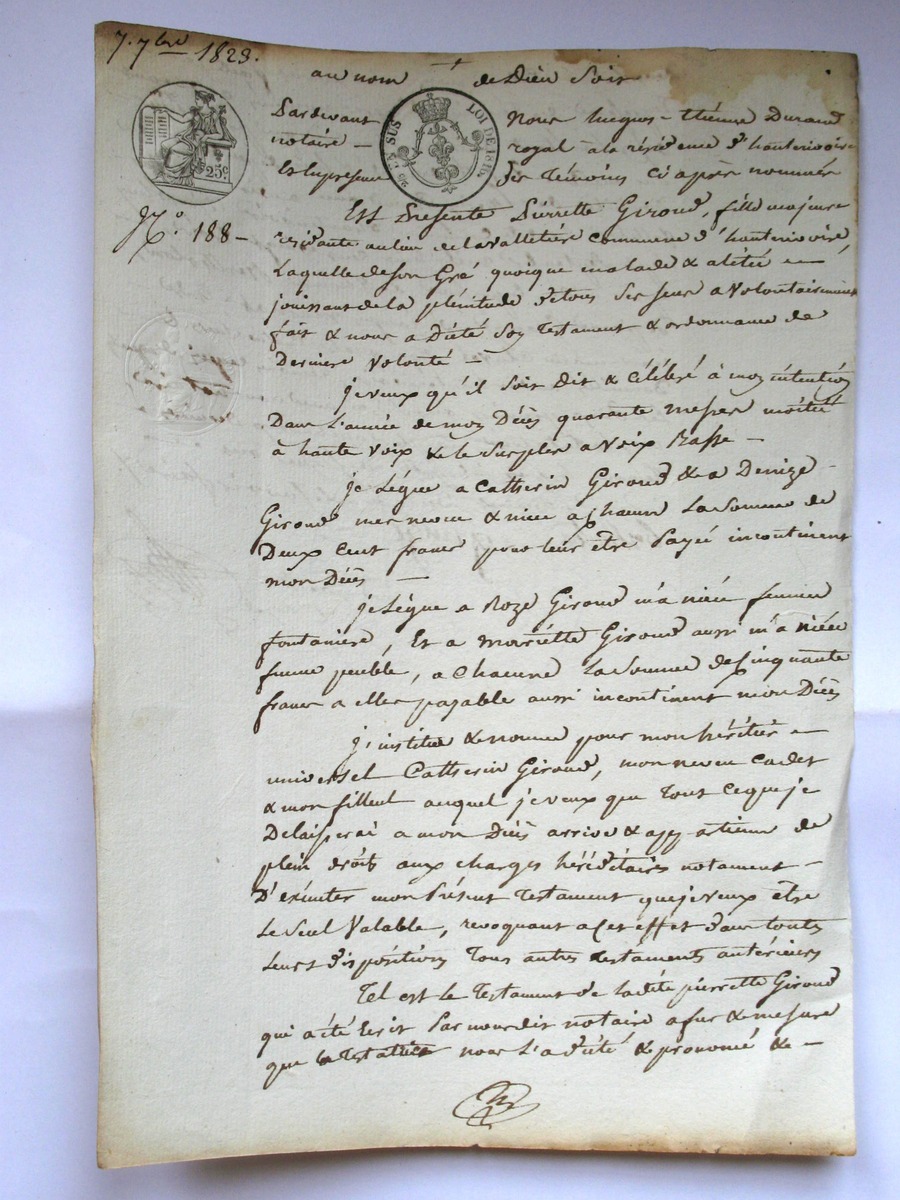 7. 7bre 1823.
au nom de Dieu Soit
Pardevant Nous hugues-Etienne Durand
notaire royal à la résidence d'hauterivoire
Et En presence des Témoins ci après nommés
25 C.
25 CS EN SUS LOI DE 1816
N.° 188 -
Est Presente Pierrette Giroud, fille majeure
residante au lieu de la valletiere commune d'hauterivoire,
Laquelle de son Gré quoique malade & alitée -
jouissant de la plénitude de tous ses sens a Volontairement
fait & nous a Dicté Son Testament & ordonnance de
Derniere Volonté -
je veux qu'il Soit Dit & Célébré à mon intention
Dans L'année de mon Décès quarante messes moitié
à haute Voix & le Surplus a Voix Basse -
je Lègue a Catherin Giroud & a Denize
Giroud mes neveu & niece a chacun La Somme de
Deux Cent francs pour leur être Payé incontinent
mon Décès -
je Lègue a Roze Giroud m'a niéce femme
fontaniere, Et a Mariette Giroud aussi m'a niéce
femme peuble, a Chacune La Somme de Cinquante
francs a elles payable aussi incontinent mon Décès
j'institue & nomme pour mon héritier -
universel Catherin Giroud, mon neveu Cadet
& mon filleul auquel je veux que Tout Ceque je
Delaisserai a mon Décès arrive & appartienne de
plein droit aux charges héréditaires notament
D'exécuter mon Présent Testament que je veux être
Le Seul Valable, revoquant a Cet effet dans toutes
Leurs dispositions Tous autres testaments antérieurs
Tel est Le Testament de Ladite pierrette Giroud
qui a été Ecrit Par nous dit notaire a fur & mesure
que la Testatrice nous L'a dicté & prononcé & -